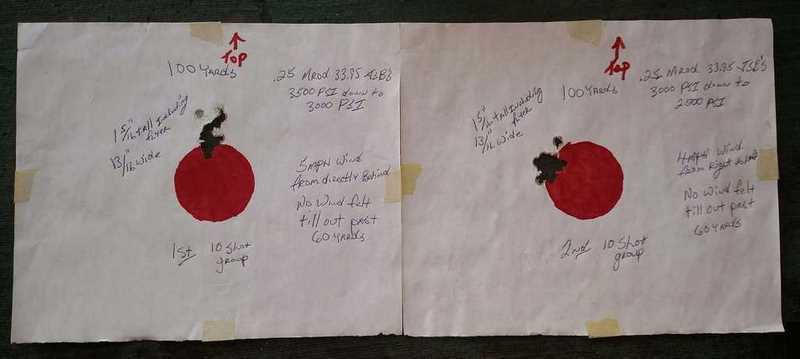 ↑
TOP
100 YARDS
.25 Mrod 33.95 JSB's
3500 PSI down to
3000 PSI
1 5/16" tall Including
flyer
13/16" wide
5 mph Wind
from directly Behind
No Wind felt
till out past
60 YARDS
1st 10 Shot
group
↑
Top
100 YARDS
.25 Mrod 33.95 JSB's
3000 PSI down to
PSI
1 5/16" tall Including
flyer
13/16" wide
4 mph Wind
from Right
No Wind felt
till out past
60 YARDS
2nd 10 Shot
group